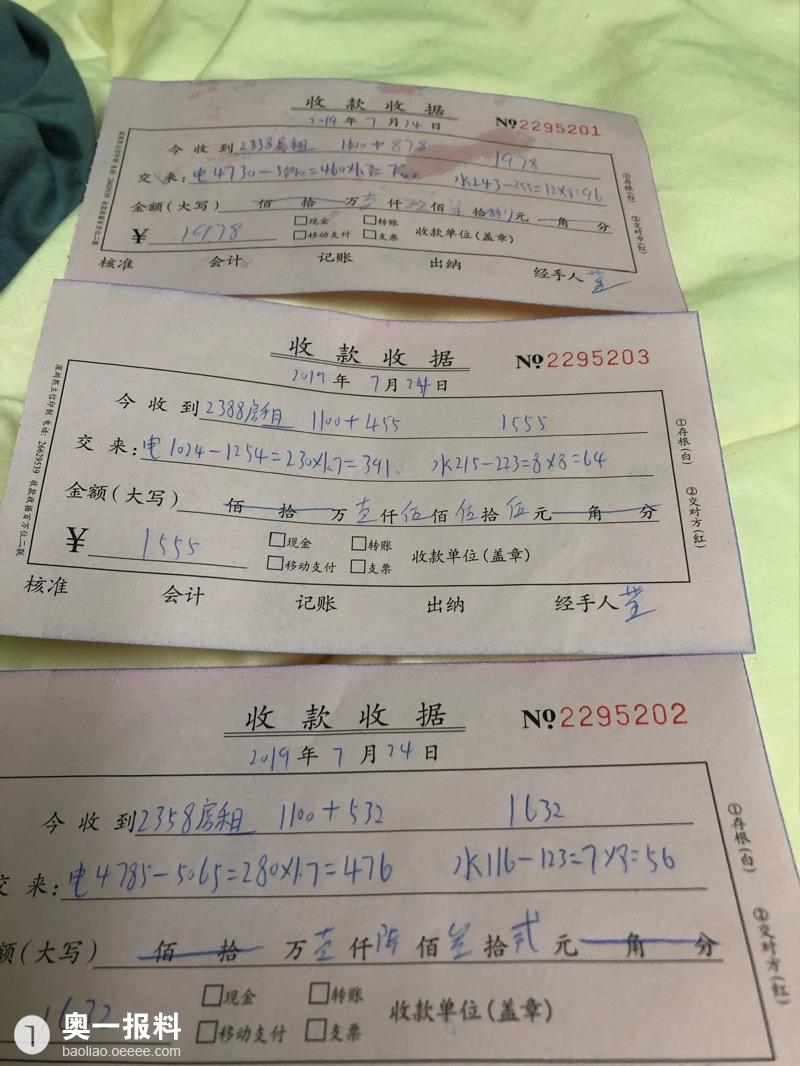 收款收据
2019年7月24日
No 2295201
今收到2338房租 1100+878 1978
交来:电4730-5190=460×1.7= 水243-255=12×8=96
金额(大写) 佰 拾 万壹仟 佰 拾 元 角 分
¥ 1978
现金 转账
移动支付 支票 收款单位(盖章)
核准 会计 记账 出纳 经手人
①存根(白) ②交对方(红)
收款收据
2019年7月24日
No 2295203
今收到2388房租 1100+455 1555
交来:电1024-1254=230×1.7=391. 水215-223=8×8=64
金额(大写) 佰 拾 万壹仟伍佰伍拾伍元 角 分
¥ 1555
现金 转账
移动支付 支票 收款单位(盖章)
核准 会计 记账 出纳 经手人
①存根(白) ②交对方(红)
电话:26629539 收款收据百万位二联
收款收据
2019年7月24日
No 2295202
今收到2358房租 1100+532 1632
交来:电4785-5065=280×1.7=476 水116-123=7×8=56
额(大写) 佰 拾 万壹仟陆佰叁拾贰元 角 分
1632
现金 转账
移动支付 支票 收款单位(盖章)
①存根(白) ②交对方(红)
奥一报料
baoliao.oeeee.com